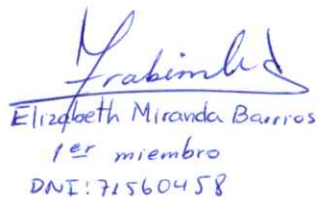 Elizabeth Miranda Barrios
1er miembro
DNI: 71560458